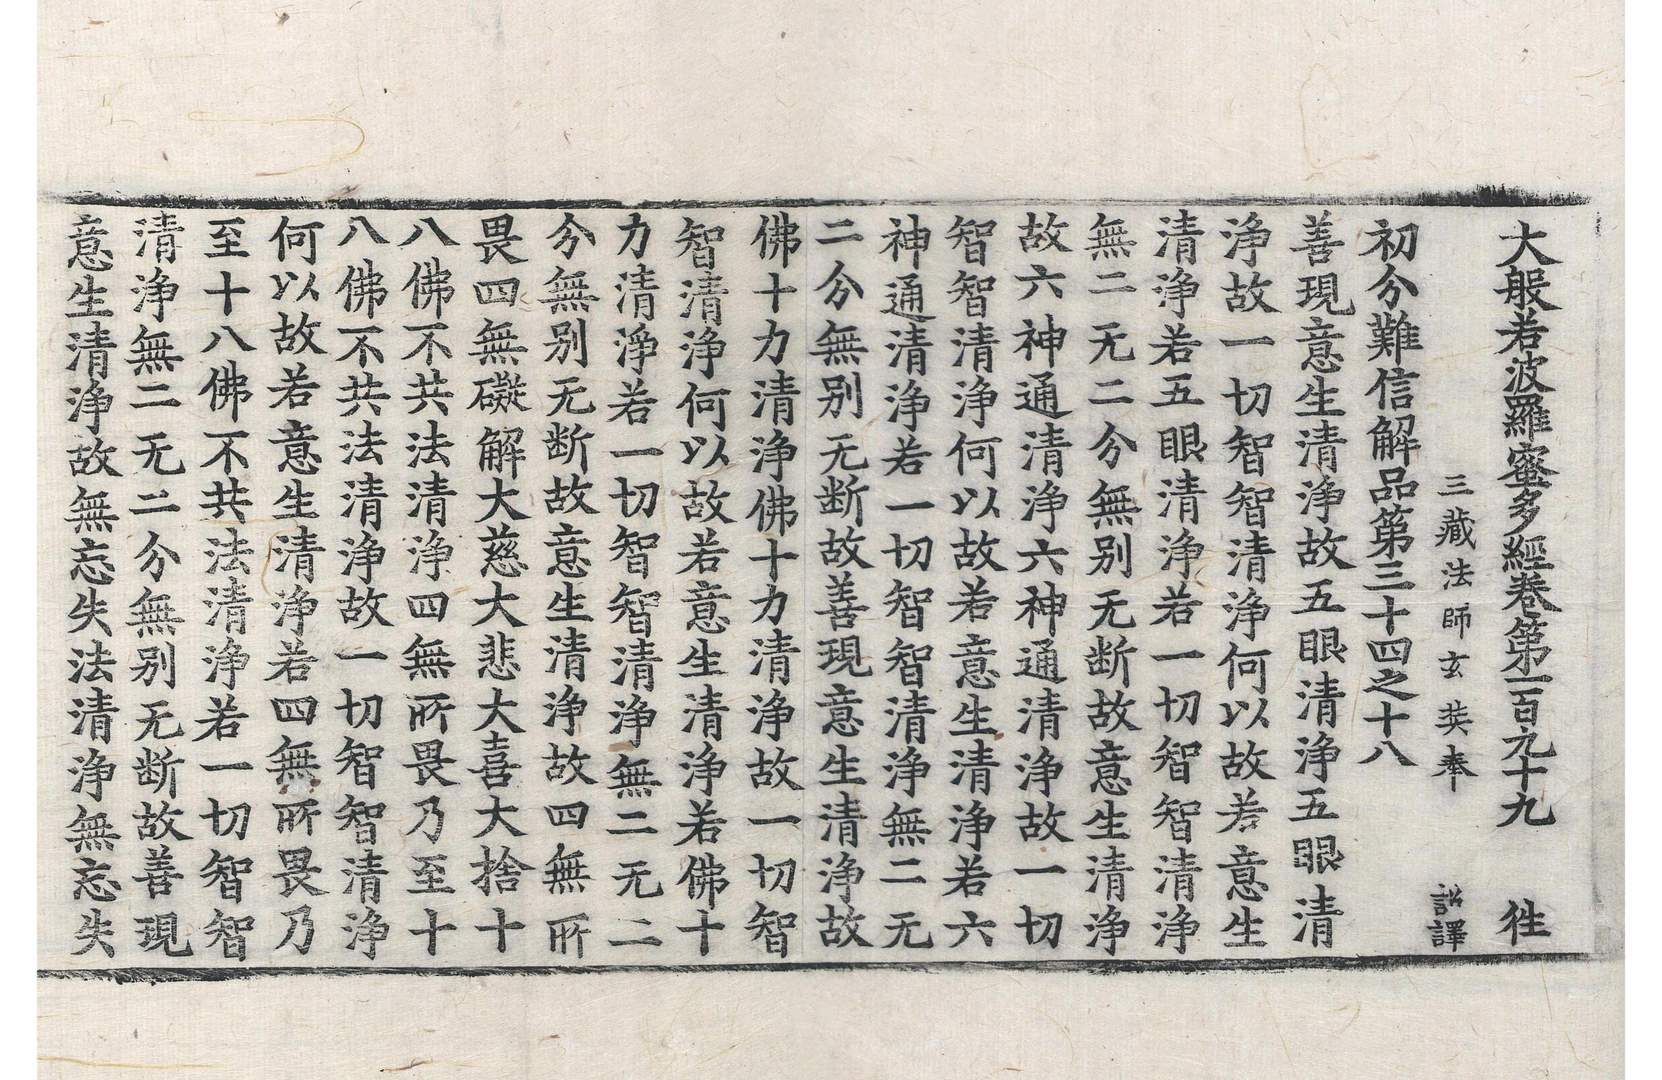 大般若波羅蜜多經卷第一百九十九 徃
三藏法師玄奘奉 詔譯
初分難信解品第三十四之十八
善現意生清淨故五眼清淨五眼清
淨故一切智智清淨何以故若意生
清淨若五眼清淨若一切智智清淨
無二无二分無別无断故意生清淨
故六神通清淨六神通清淨故一切
智智清淨何以故若意生清淨若六
神通清淨若一切智智清淨無二无
二分無別无断故善現意生清淨故
佛十力清淨佛十力清淨故一切智
智清淨何以故若意生清淨若佛十
力清淨若一切智智清淨無二无二
分無別无断故意生清淨故四無所
畏四無礙解大慈大悲大喜大捨十
八佛不共法清淨四無所畏乃至十
八佛不共法清淨故一切智智清淨
何以故若意生清淨若四無所畏乃
至十八佛不共法清淨若一切智智
清淨無二无二分無別无断故善現
意生清淨故無忘失法清淨無忘失